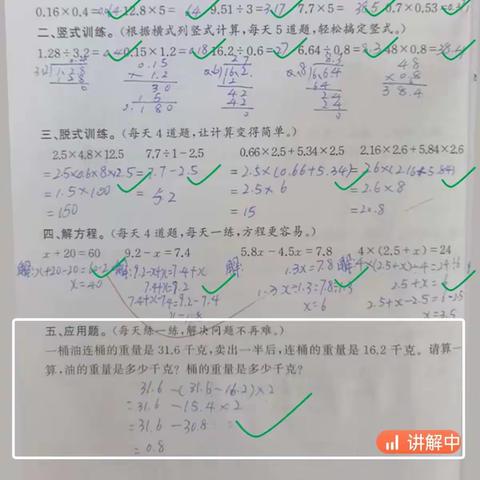 0.16×0.4= 12.8×5=64 9.51÷3=3.17 7.7×5=38.5 0.7×0.53=
二、竖式训练。(根据横式列竖式计算,每天5道题,轻松搞定竖式。)
1.28÷3.2= 0.15×1.2=0.18 16.2÷0.6=27 6.64÷0.8=8.3 48×0.8=38.4
0.15 27 48
×1.2 ×0.8
30 42 64 38.4
15 42 24
0.180 0 24
0
三、脱式训练。(每天4道题,让计算变得简单。)
2.5×4.8×12.5 7.7÷1-2.5 0.66×2.5+5.34×2.5 2.16×2.6+5.84×2.6
=2.5×0.6×8×2.5 =7.7-2.5 =2.5×(0.66+5.34) =2.6×(2.16+5.84)
=1.5×100 =5.2 =2.5×6 =2.6×8
=150 =15 =20.8
四、解方程。(每天4道题,每天一练,方程更容易。)
x+20=60 9.2-x=7.4 5.8x-4.5x=7.8 4×(2.5+x)=24
解:x+20-20=60-2 解:9.2-x+x=7.4+x 解: 1.3x=7.8 解:
x=40 7.4+x=9.2 2.5+x=6
7.4+x-7.4=9.2-7.4 x=6 2.5+x-2.5=6-2.5
x=3.5
五、应用题。(每天练一练,解决问题不再难。)
一桶油连桶的重量是31.6千克,卖出一半后,连桶的重量是16.2千克。请算一
算,油的重量是多少千克?桶的重量是多少千克?
31.6-(31.6-16.2)×2
=31.6-15.4×2
=31.6-30.8
=0.8
讲解中